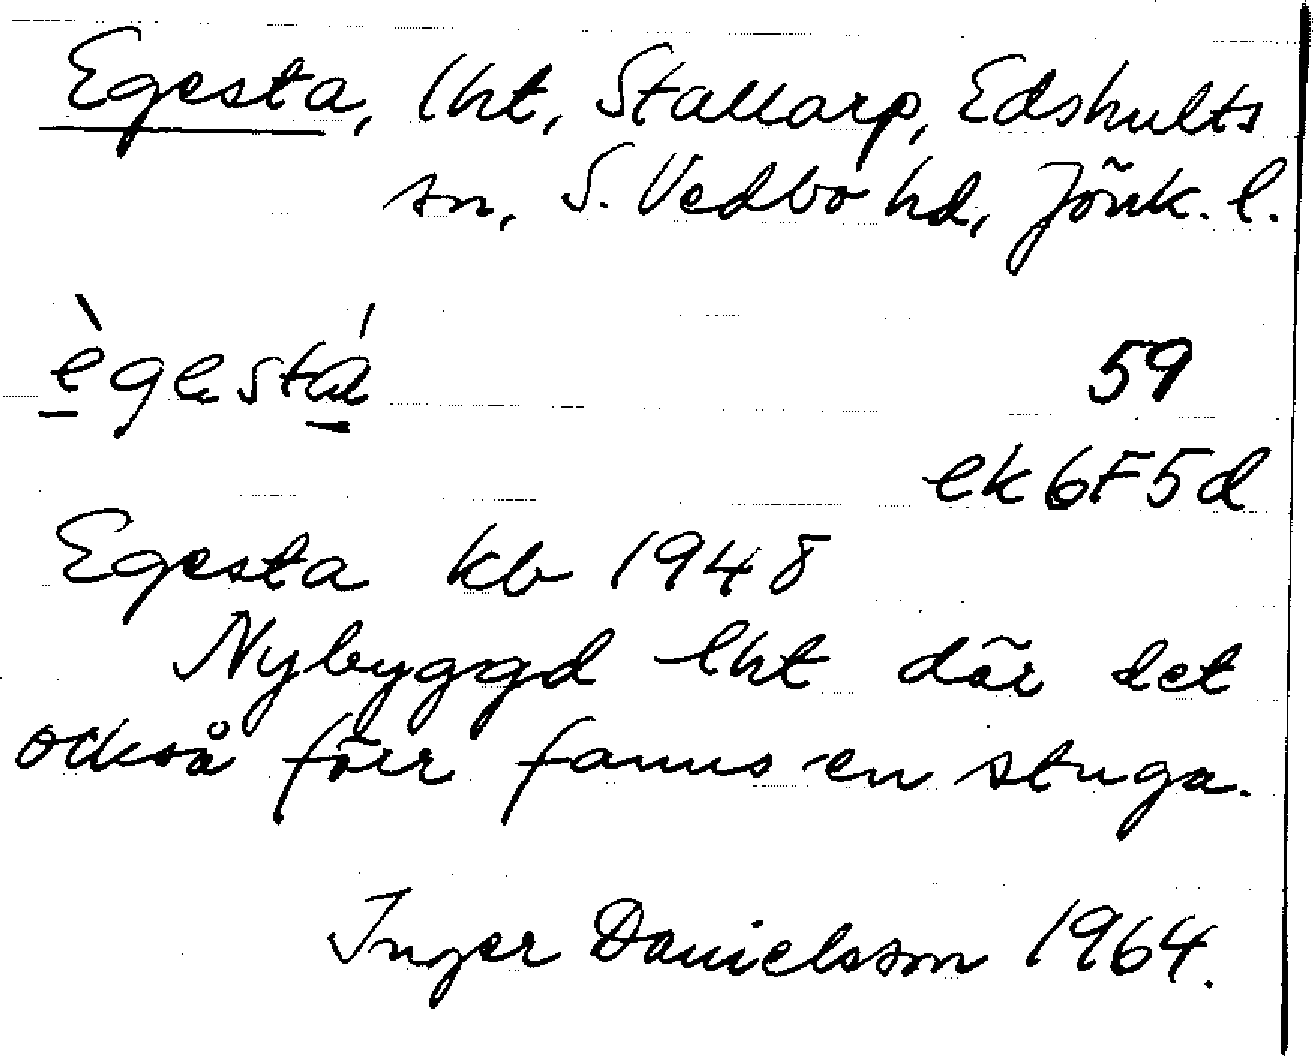 Egesta, lht, Stallarp, Edshults
sn, S. Vedbo hd, Jönk. l.
ègestá
59
ek 6F5d
Egesta kb 1948
Nybyggd lht där det
också förr fanns en stuga.
Inger Danielsson 1964.